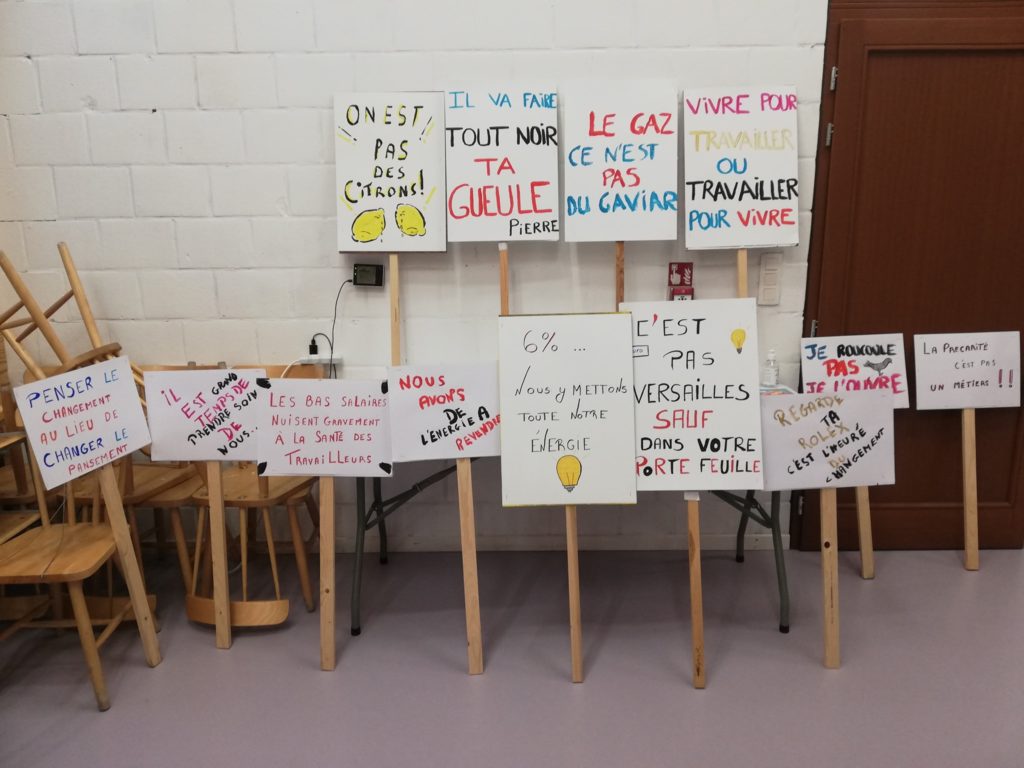 ON EST
PAS
DES
CITRONS!
IL VA FAIRE
TOUT NOIR
TA
GUEULE
PIERRE
LE GAZ
CE N'EST
PAS
DU CAVIAR
VIVRE POUR
TRAVAILLER
OU
TRAVAILLER
POUR VIVRE
PENSER LE
CHANGEMENT
AU LIEU DE
CHANGER LE
PANSEMENT
IL
EST GRAND
TEMPS DE
PRENDRE SOIN
DE
NOUS...
LES BAS SALAIRES
NUISENT GRAVEMENT
À LA SANTÉ DES
TRAVAILLEURS
NOUS
AVONS
DE
L'ÉNERGIE À
REVENDRE
6% ...
NOUS Y METTONS
TOUTE NOTRE
ÉNERGIE
C'EST
PAS
VERSAILLES
SAUF
DANS VOTRE
PORTE FEUILLE
REGARDE
TA
ROLEX
C'EST L'HEURE
DU
CHANGEMENT
JE ROUCOULE
PAS
JE L'OUVRE
LA PRÉCARITÉ
C'EST PAS
UN MÉTIERS !!